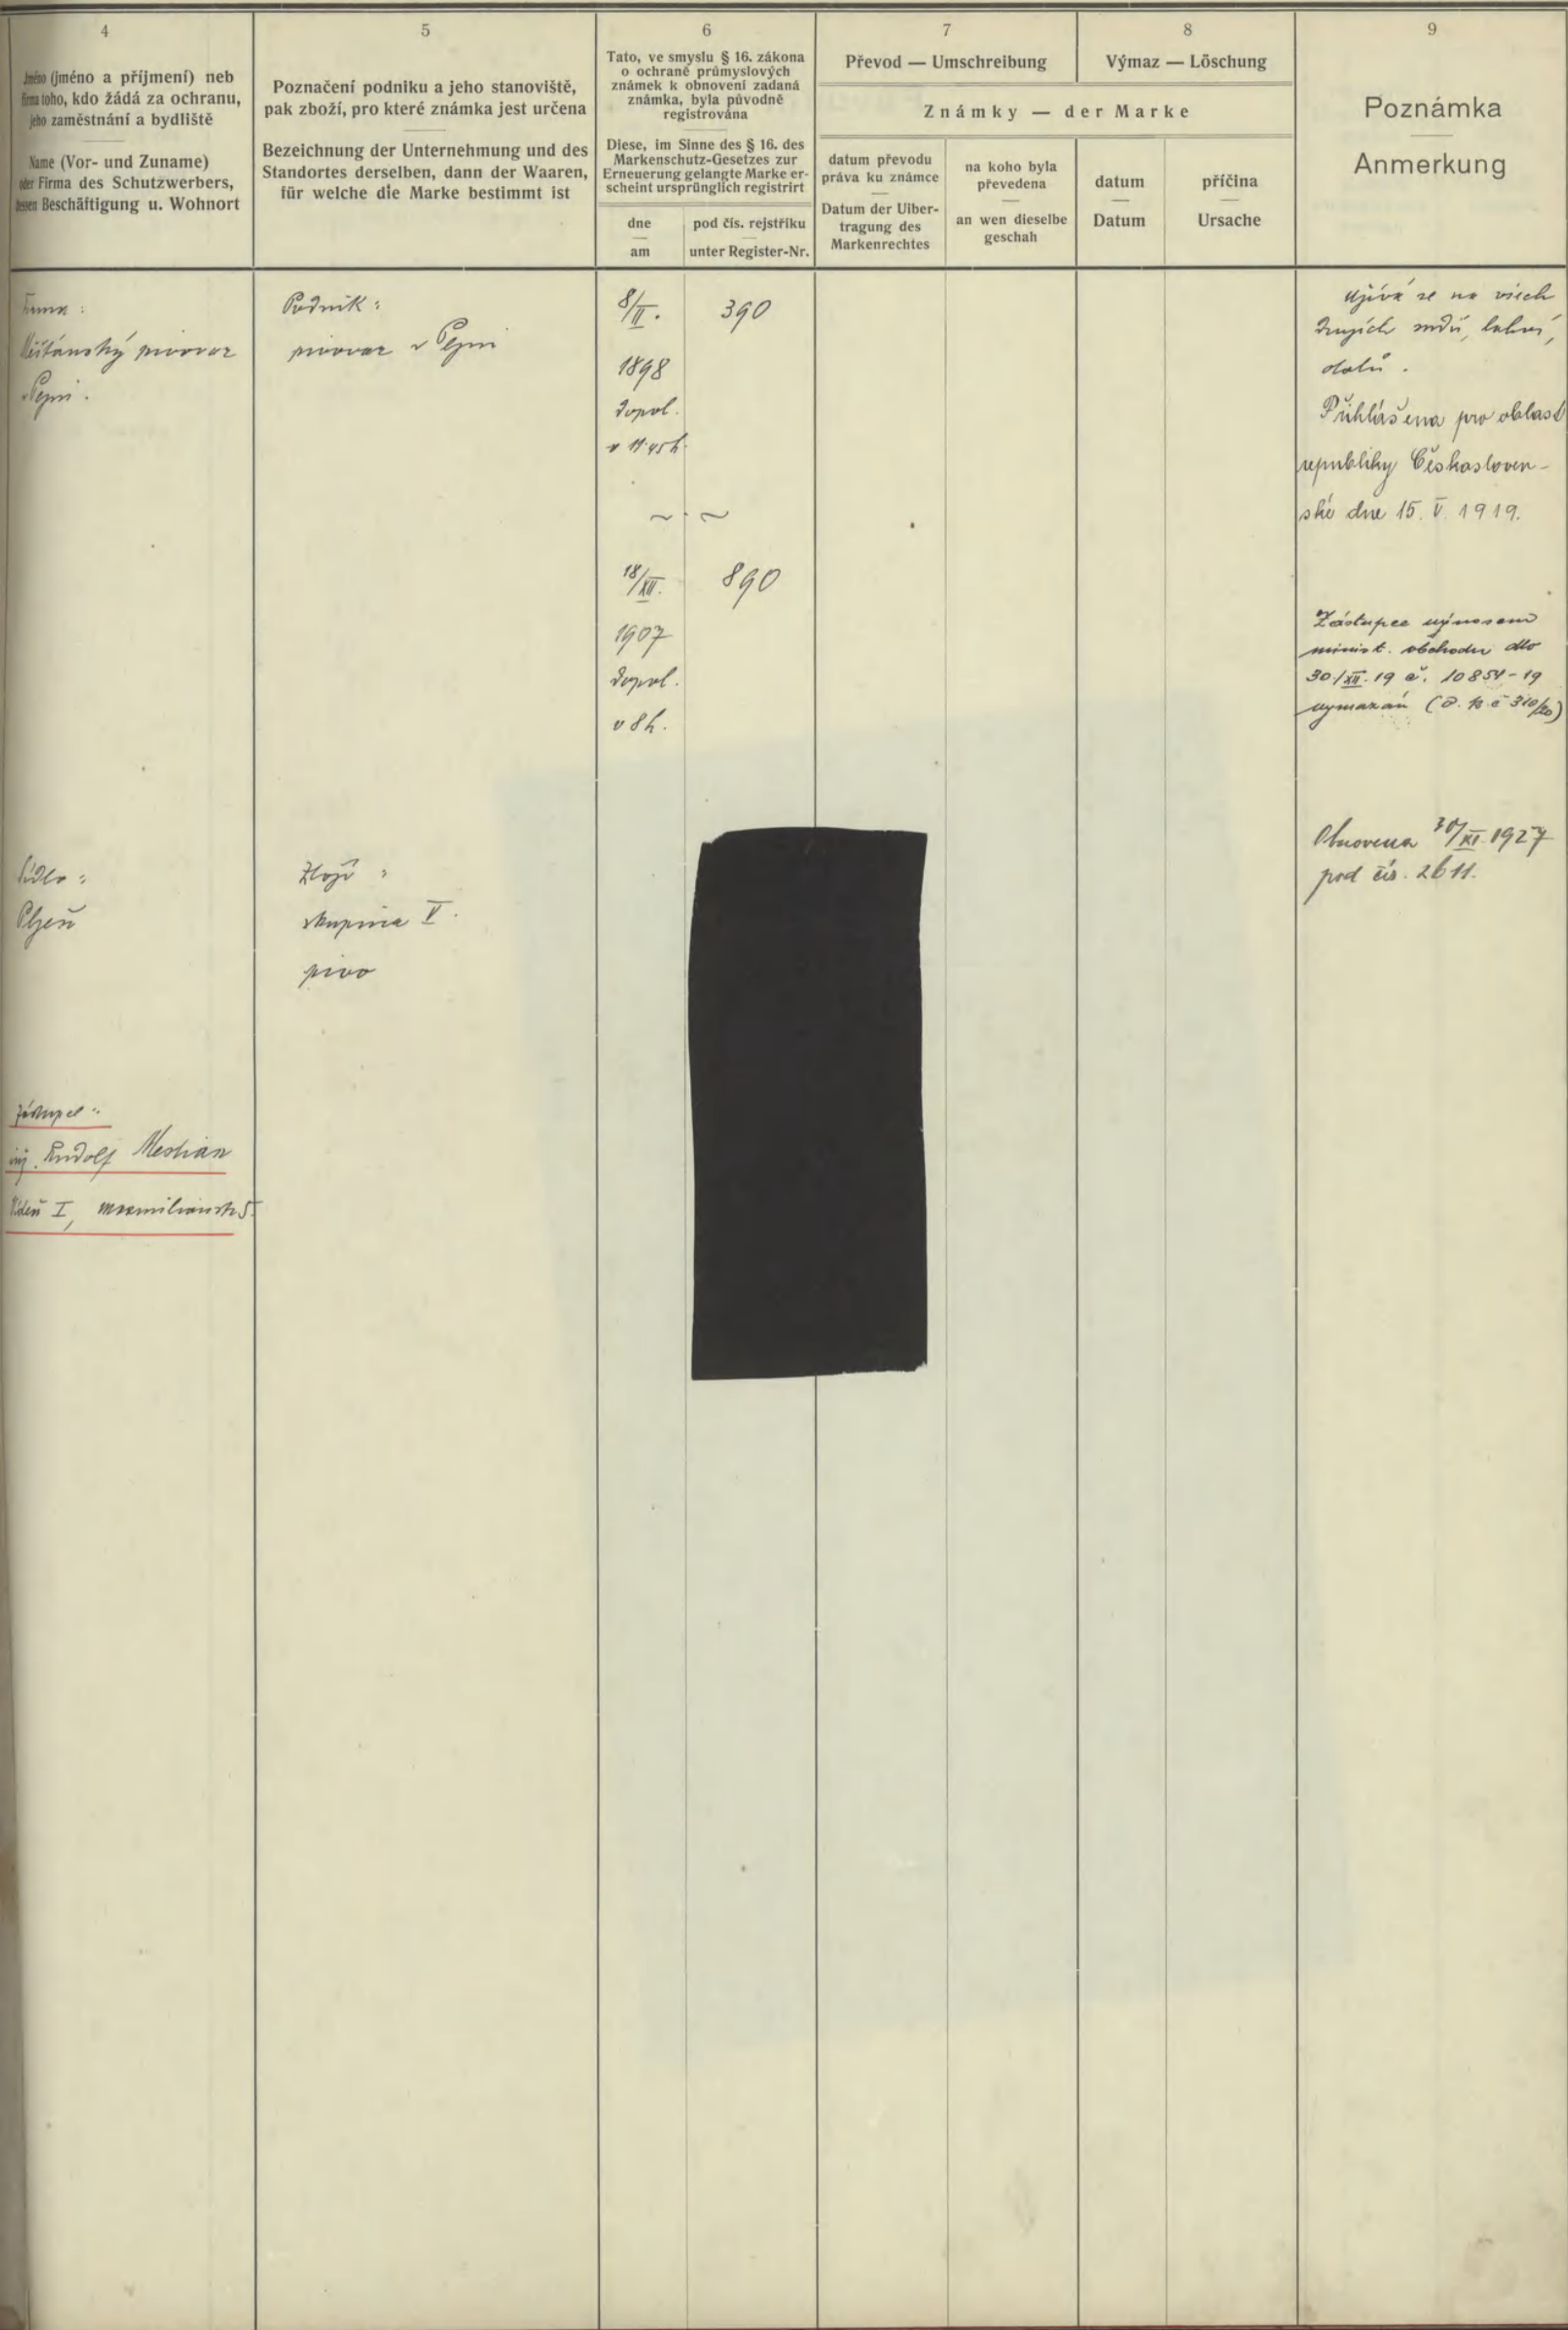 4
Jméno (jméno a příjmení) neb
firma toho, kdo žádá za ochranu,
jeho zaměstnání a bydliště
Name (Vor- und Zuname)
oder Firma des Schutzwerbers,
dessen Beschäftigung u. Wohnort
5
Poznačení podniku a jeho stanoviště,
pak zboží, pro které známka jest určena
Bezeichnung der Unternehmung und des
Standortes derselben, dann der Waaren,
für welche die Marke bestimmt ist
6
Tato, ve smyslu § 16. zákona
o ochraně průmyslových
známek k obnovení zadaná
známka, byla původně
registrována
Diese, im Sinne des § 16. des
Markenschutz-Gesetzes zur
Erneuerung gelangte Marke er-
scheint ursprünglich registrirt
dne
am
pod čís. rejstříku
unter Register-Nr.
7
Převod — Umschreibung
8
Výmaz — Löschung
Známky — der Marke
datum převodu
práva ku známce
Datum der Uiber-
tragung des
Markenrechtes
na koho byla
převedena
an wen dieselbe
geschah
datum
Datum
příčina
Ursache
9
Poznámka
Anmerkung
Firma:
Měšťanský pivovar
v Plzni.
Sídlo:
Plzeň
Zástupce:
inž. Rudolf
Vídeň I,
Podnik:
pivovar v Plzni
Zboží:
skupina V.
pivo
8/II. 390
1898
dopol.
v 11.45 h.
18/XII. 890
1907
dopol.
v 8 h.
Užívá se na všech
sudů, lahví,
Přihlášena pro oblast
republiky Českosloven-
ské dne 15. V. 1919.
Zástupce výnosem
minist. obchodu dto
30/XII. 19 č. 10854-19
vymazán (č. 310/20)
Obnovena 30/XI. 1927
pod čís. 2611.